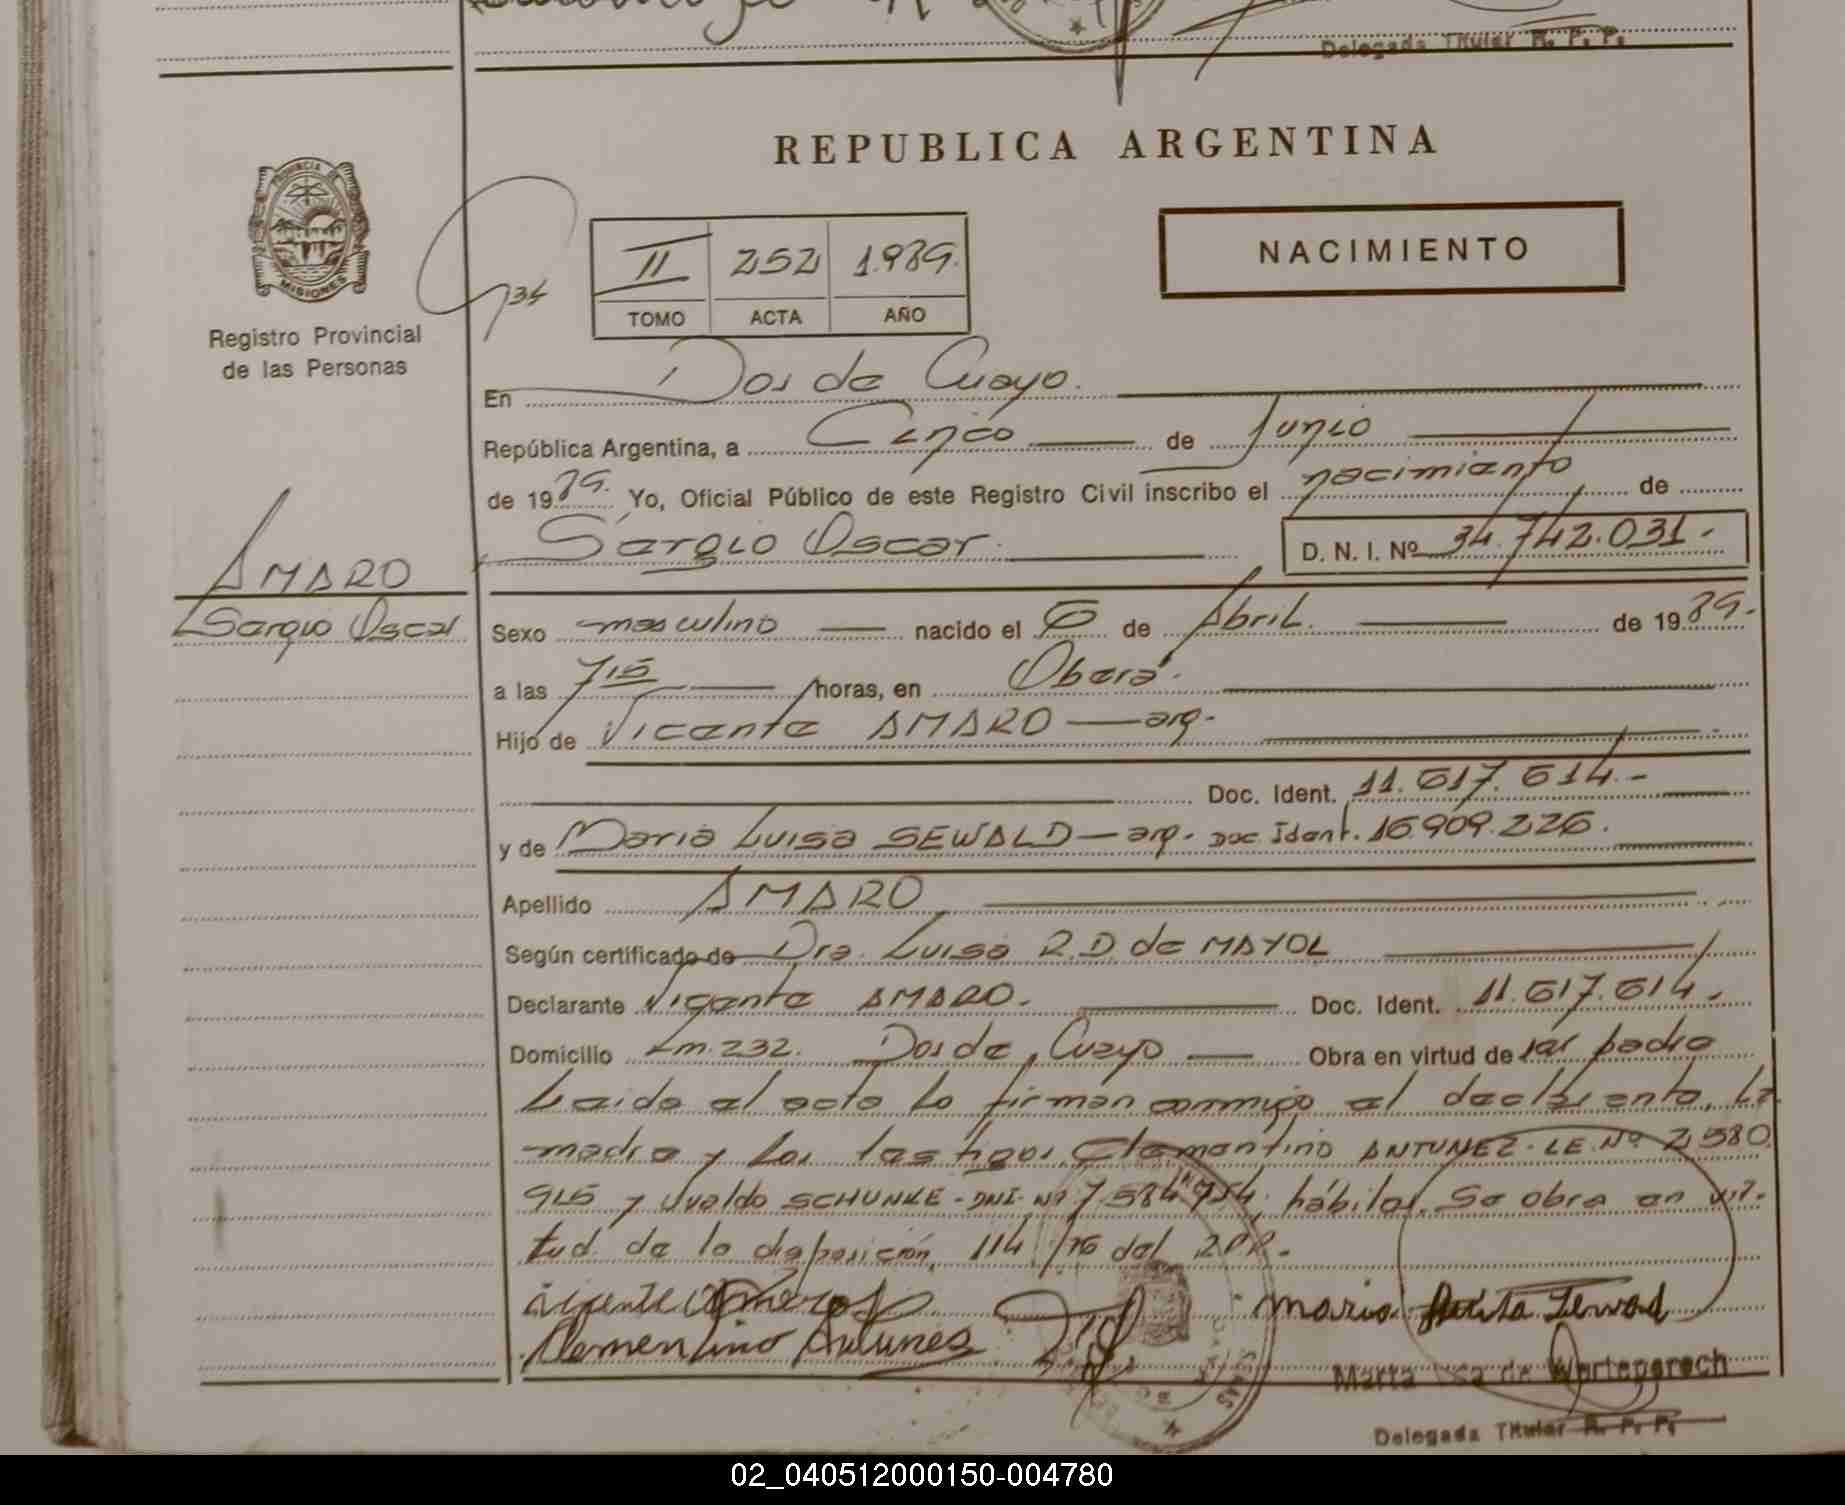 Delegada Titular R. P. P.
REPUBLICA ARGENTINA
PROVINCIA DE
MISIONES
Registro Provincial
de las Personas
34
II 252 1.989.
TOMO ACTA AÑO
NACIMIENTO
En Dos de Mayo.
República Argentina, a Cinco de Junio
de 1989. Yo, Oficial Público de este Registro Civil inscribo el nacimiento de
Sergio Oscar D. N. I. Nº 34.742.031.-
AMARO
Sergio Oscar
Sexo masculino nacido el 6 de Abril. de 1989.
a las 7 15 horas, en Oberá.
Hijo de Vicente AMARO — arg.
Doc. Ident. 11.617.614.-
y de Maria Luisa SEWALD — arg. Doc Ident. 16.909.226.
Apellido AMARO
Según certificado de Dra. Luisa R.D. de MAYOL
Declarante Vicente AMARO. Doc. Ident. 11.617.614.
Domicilio Km. 232. Dos de Mayo Obra en virtud de ser padre
Leida el acta la firman conmigo el declarante, la
madre y los testigos Clementino ANTUNEZ - LE. Nº 2.580
915 y Uvaldo SCHUNKE - DNI- Nº 7.584.954, hábiles. Se obra en vir-
tud de la disposición 114/76 del RPP.-
Maria
Clementino Antunes
Marta de
Delegada Titular R. P. P.
02_040512000150-004780